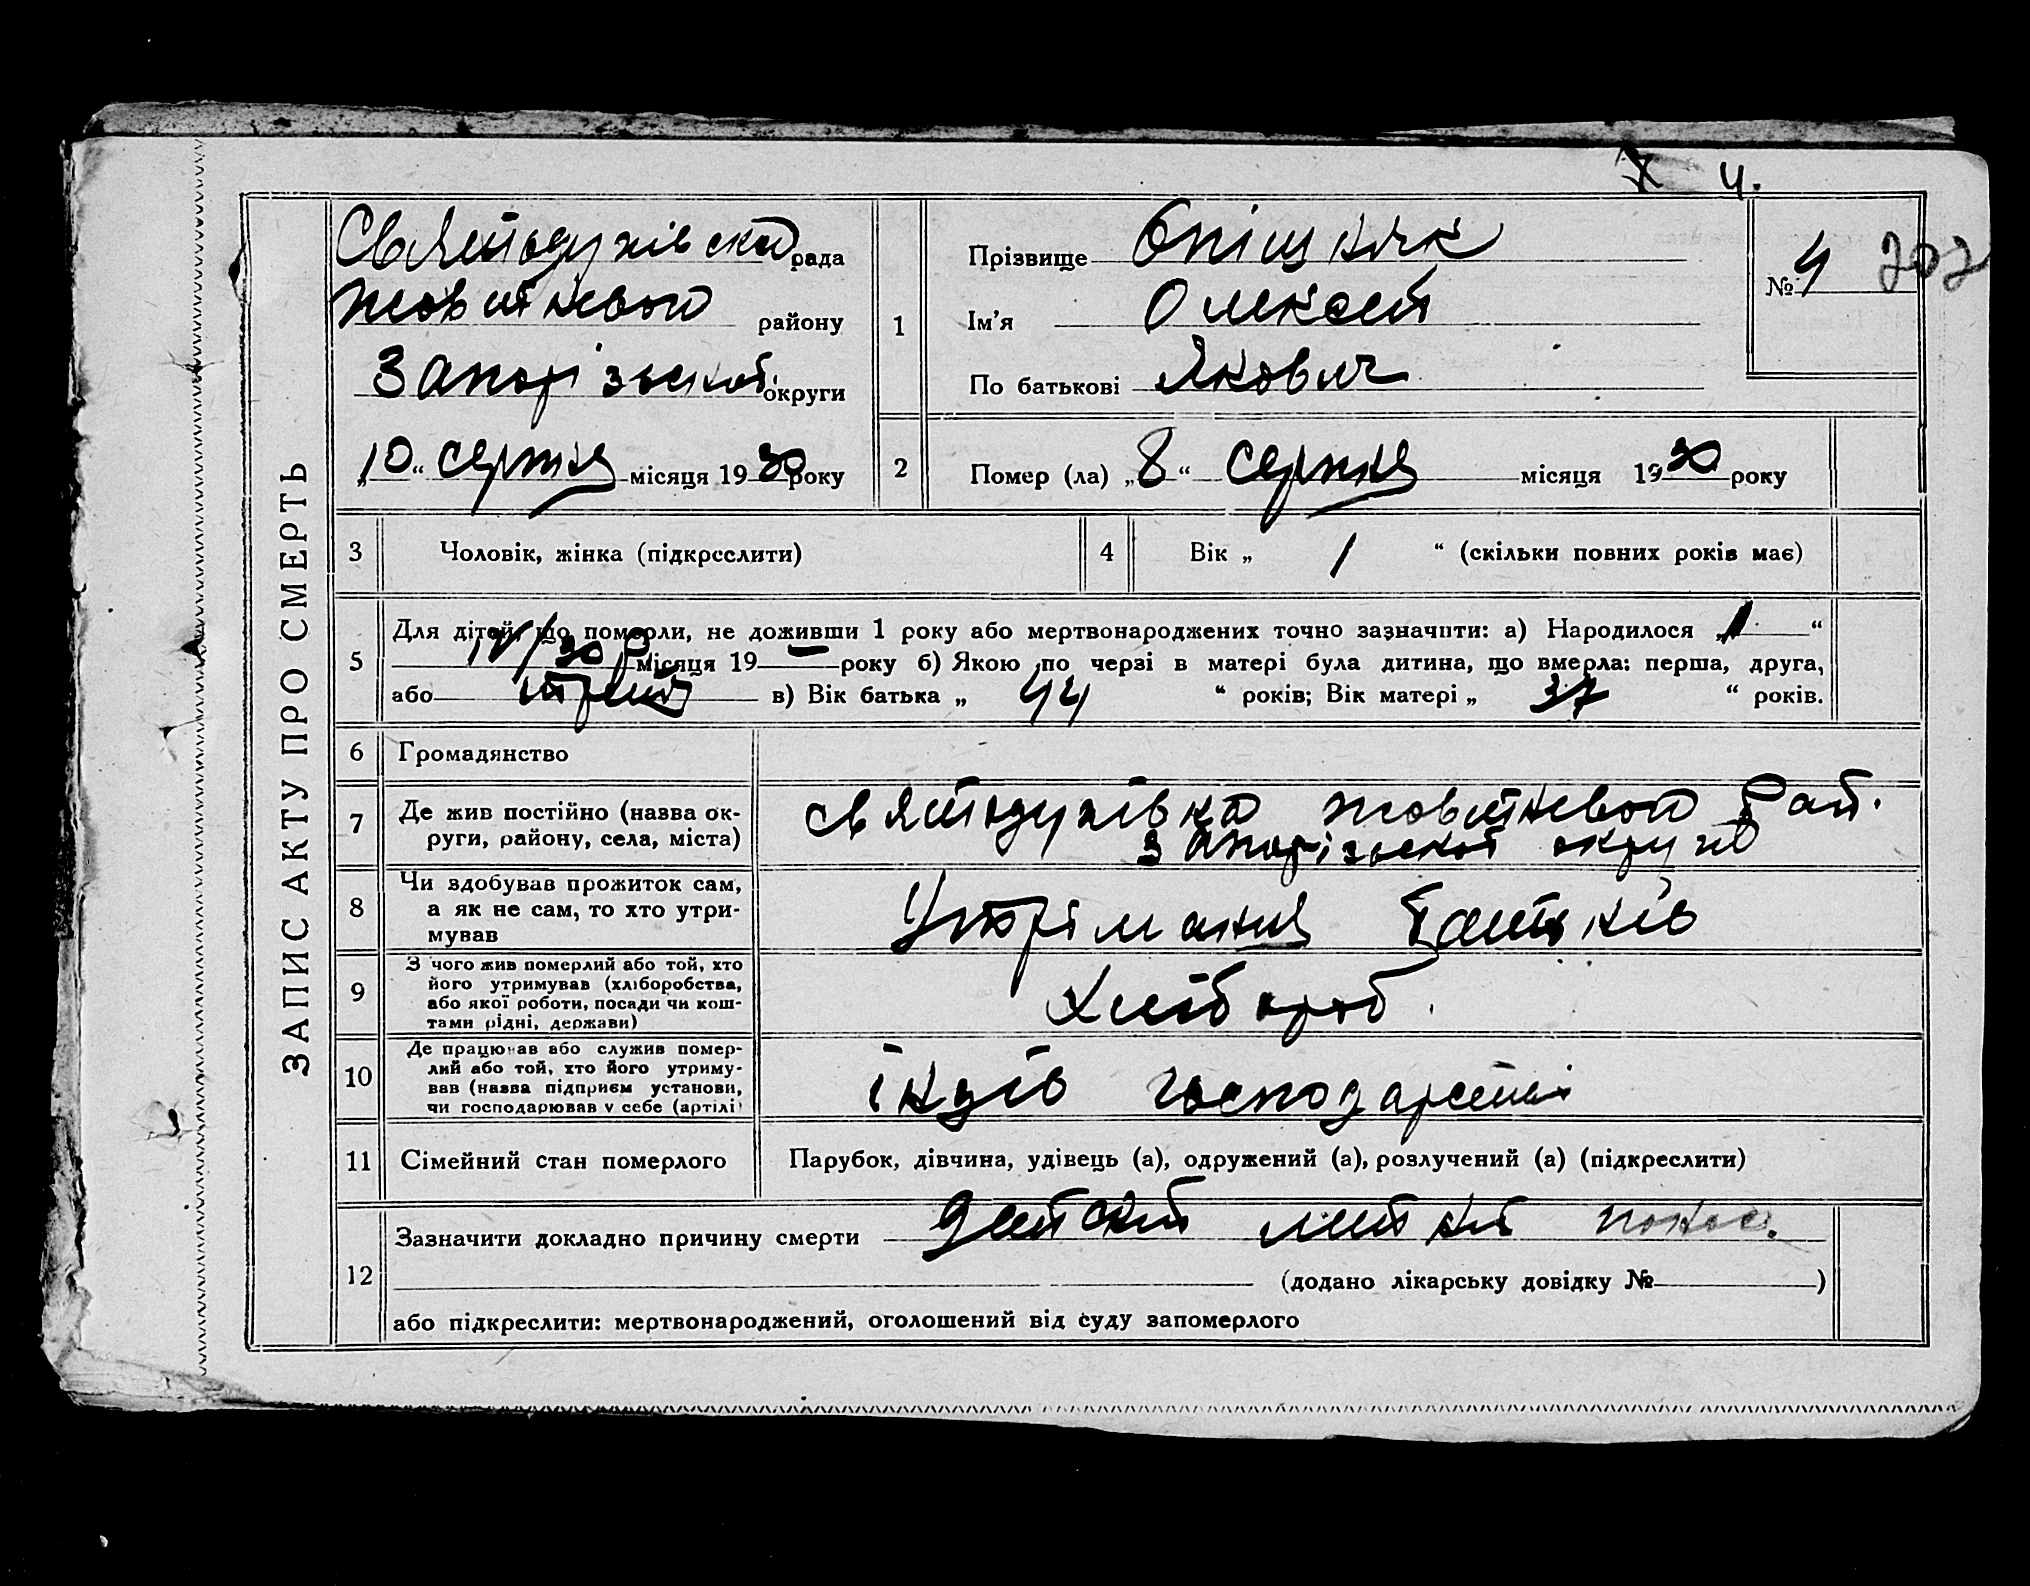 Х ч.
ЗАПИС АКТУ ПРО СМЕРТЬ
Святодухівська рада
Жовтневой району
Запорізьской округи
„10“ серпня місяця 1930 року
1
Прізвище Опішняк
Ім'я Олексей
По батькові Якович
№ 4 202
2
Помер (ла) „8“ серпня місяця 1930 року
3 Чоловік, жінка (підкреслити)
4 Вік „ 1 “ (скільки повних років має)
5 Для дітей, що померли, не доживши 1 року або мертвонароджених точно зазначити: а) Народилося „ “
місяця 19 — року б) Якою по черзі в матері була дитина, що вмерла: перша, друга,
або в) Вік батька „ 44 “ років; Вік матері „ 37 “ років.
6 Громадянство
7 Де жив постійно (назва округи, району, села, міста)
Святодухівка Жовтневой Рай.
Запорізьской округи
8 Чи здобував прожиток сам,
а як не сам, то хто утри-
мував
Утрімання батьків
9 З чого жив померлий або той, хто
його утримував (хліборобства,
або якої роботи, посади чи кош-
тами рідні, держави)
Хлібороб.
10 Де працював або служив помер-
лий або той, хто його утриму-
вав (назва підприєм установи,
чи господарював у себе (артілі)
господарстві
11 Сімейний стан померлого
Парубок, дівчина, удівець (а), одружений (а), розлучений (а) (підкреслити)
12 Зазначити докладно причину смерти детский летний понос.
(додано лікарську довідку № )
або підкреслити: мертвонароджений, оголошений від суду запомерлого